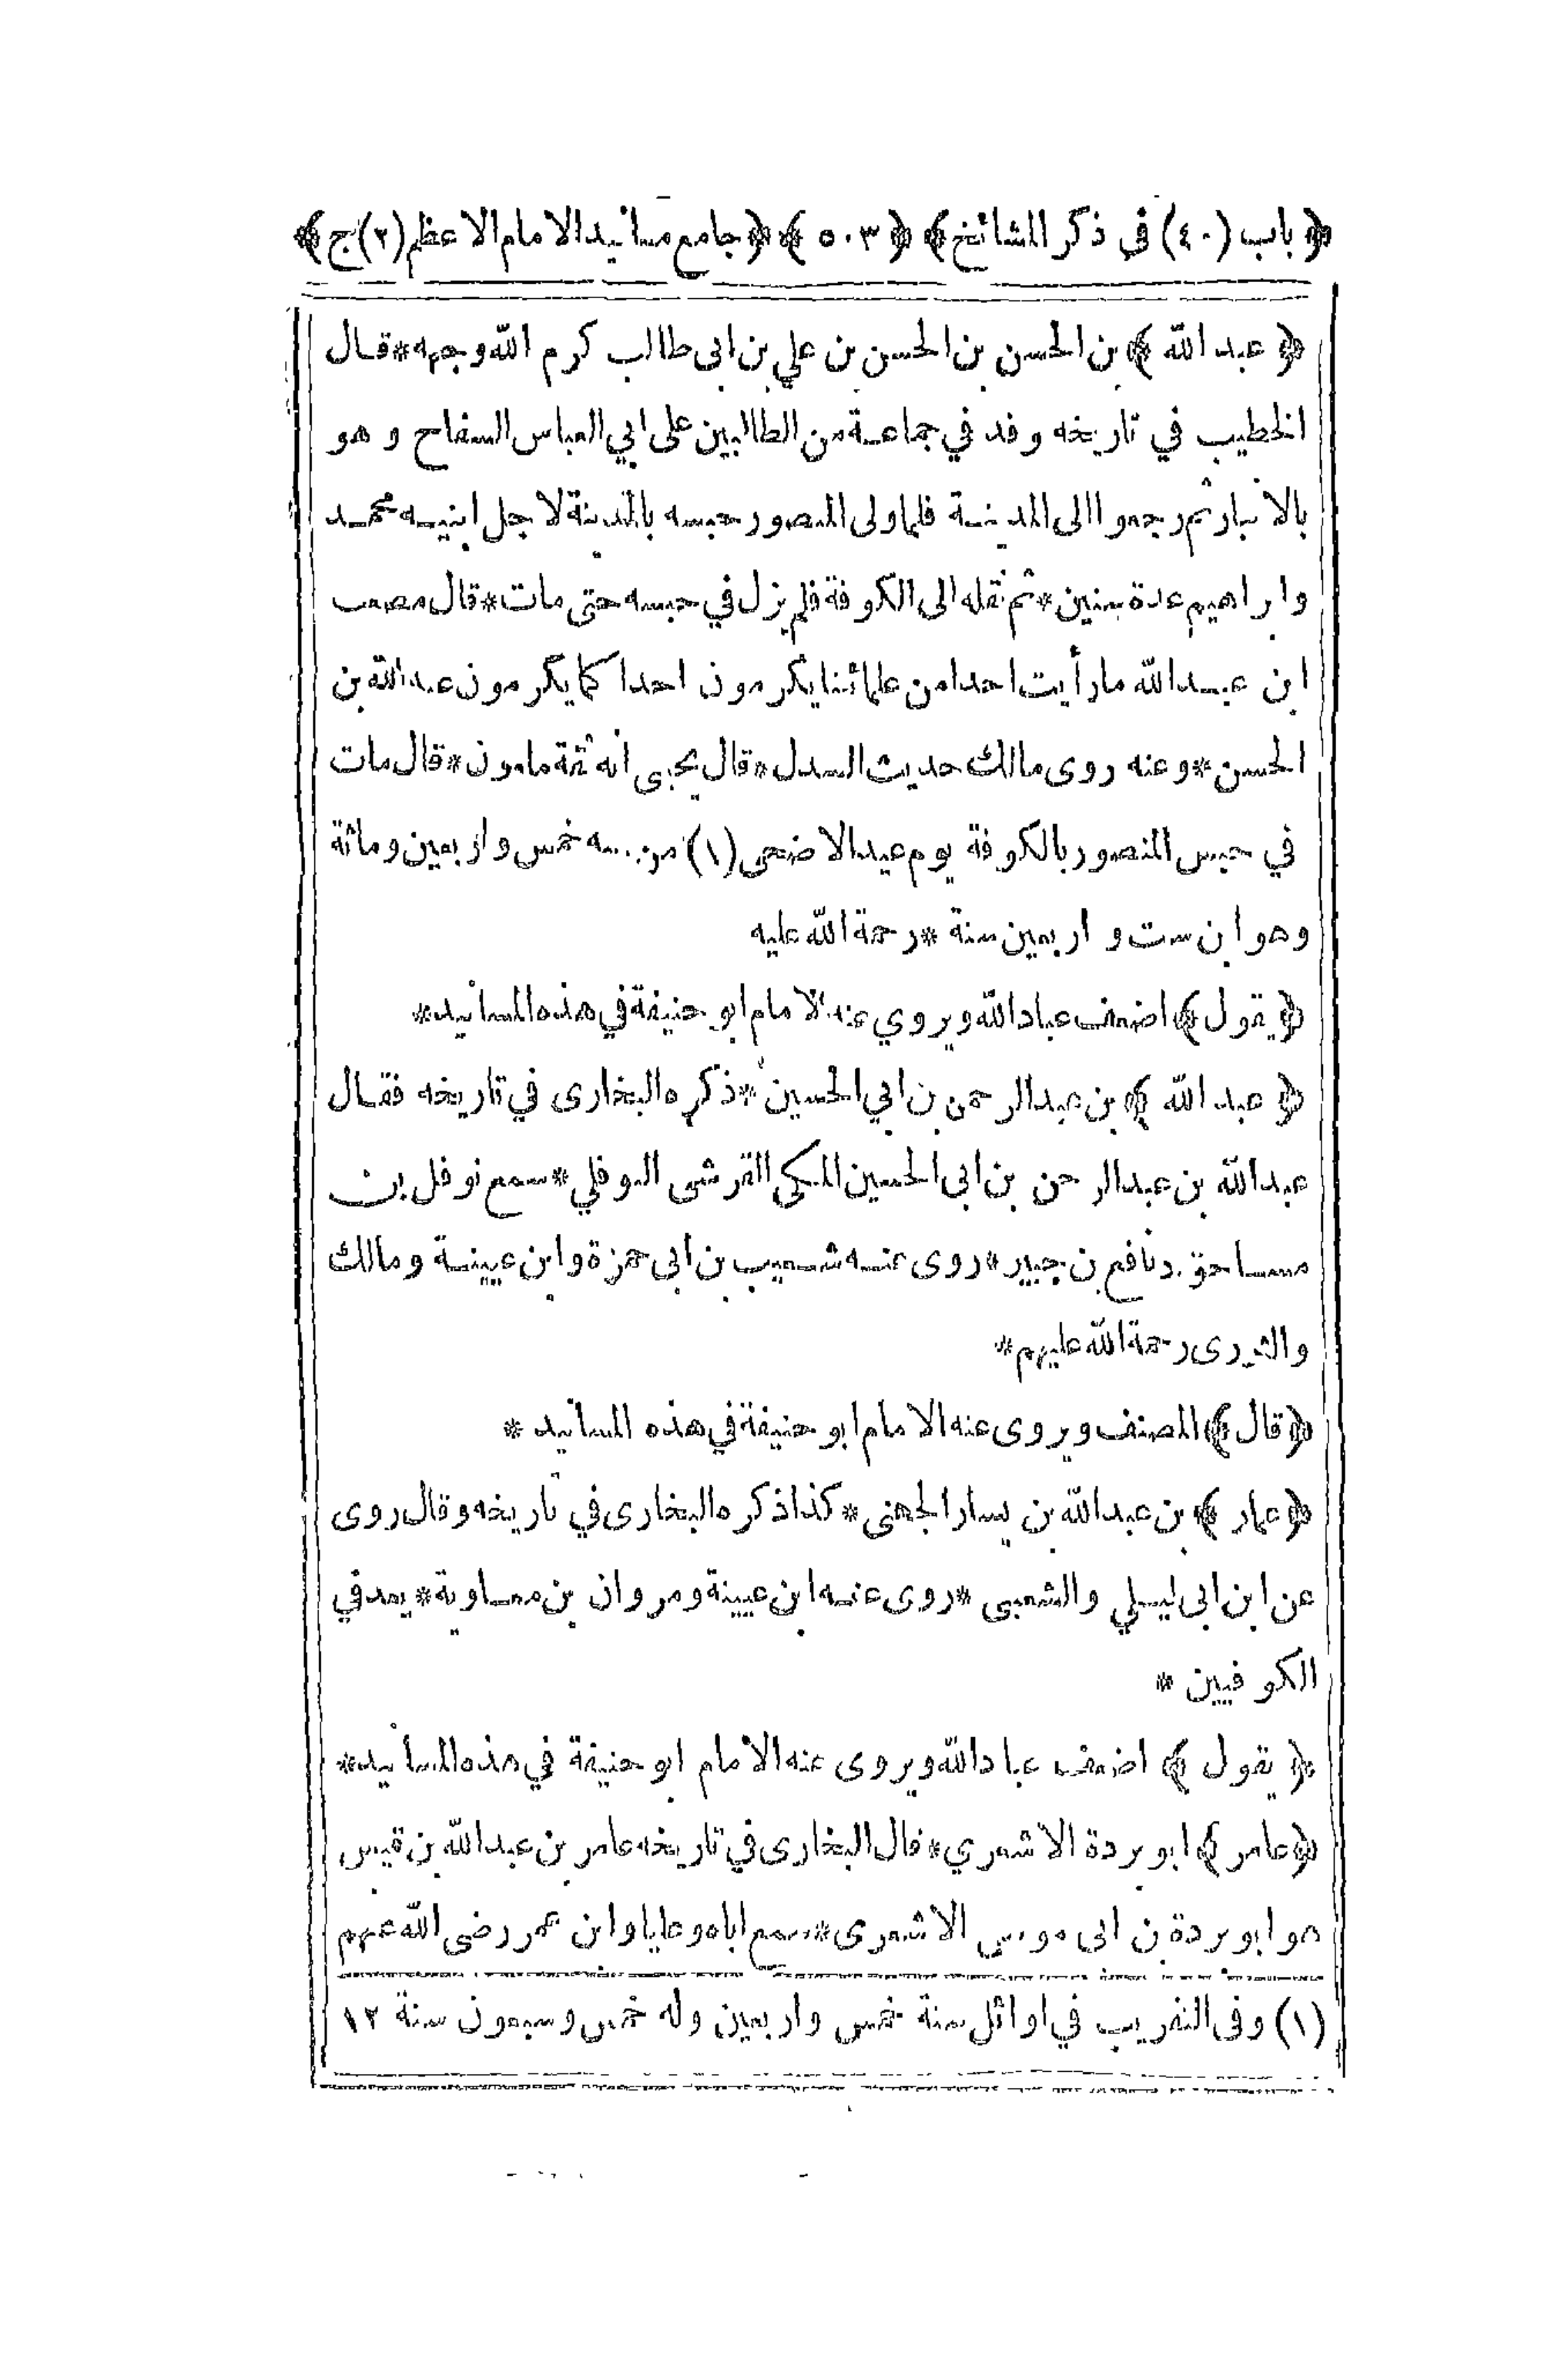 ﴿ باب (٤٠) في ذكر المشائخ ﴾ ﴿ ٥٠٣ ﴾ ﴿ جامع مسانيد الامام الاعظم (٢) ج ﴾
﴿ عبد الله ﴾ بن الحسن بن الحسن بن علي بن ابى طالب كرم الله وجهه * قال
الخطيب في تاريخه وفد في جماعة من الطالبين على ابي العباس السفاح وهو
بالانبار ثم رجعوا الى المدينة فلما ولى المنصور حبسه بالمدينة لاجل ابنيه محمد
وابراهيم عدة سنين * ثم نقله الى الكوفة فلم يزل في حبسه حتى مات * قال مصعب
ابن عبدالله ما رأيت احدا من علمائنا يكرمون احدا كما يكرمون عبدالله بن
الحسن * وعنه روى مالك حديث السدل * قال يحيى انه ثقة مامون * قال مات
في حبس المنصور بالكوفة يوم عيد الاضحى (١) من سنه خمس واربعين ومائة
وهو ابن ست و اربعين سنة * رحمة الله عليه
﴿ يقول ﴾ اضعف عباد الله ويروي عنه الامام ابو حنيفة في هذه المسانيد *
﴿ عبد الله ﴾ بن عبدالرحمن بن ابي الحسين * ذكره البخارى في تاريخه فقال
عبدالله بن عبدالرحمن بن ابى الحسين المكى القرشى النوفلي * سمع نوفل بن
مساحق ونافع بن جبير * روى عنه شعيب بن ابى حمزة وابن عيينة ومالك
والثورى رحمة الله عليهم *
﴿ قال ﴾ المصنف ويروى عنه الامام ابو حنيفة في هذه المسانيد *
﴿ عمار ﴾ بن عبدالله بن يسار الجهنى * كذا ذكره البخارى في تاريخه وقال روى
عن ابن ابى ليلي والشعبى * روى عنه ابن عيينة ومروان بن معاوية * يعد في
الكوفيين *
﴿ يقول ﴾ اضعف عباد الله ويروى عنه الامام ابو حنيفة في هذه المسانيد *
﴿ عامر ﴾ ابو بردة الاشعري * قال البخارى في تاريخه عامر بن عبدالله بن قيس
هو ابو بردة بن ابى موسى الاشعرى * سمع اباه وعليا وابن عمر رضى الله عنهم
(١) وفى التقريب في اوائل سنة خمس واربعين وله خمس وسبعون سنة ١٢